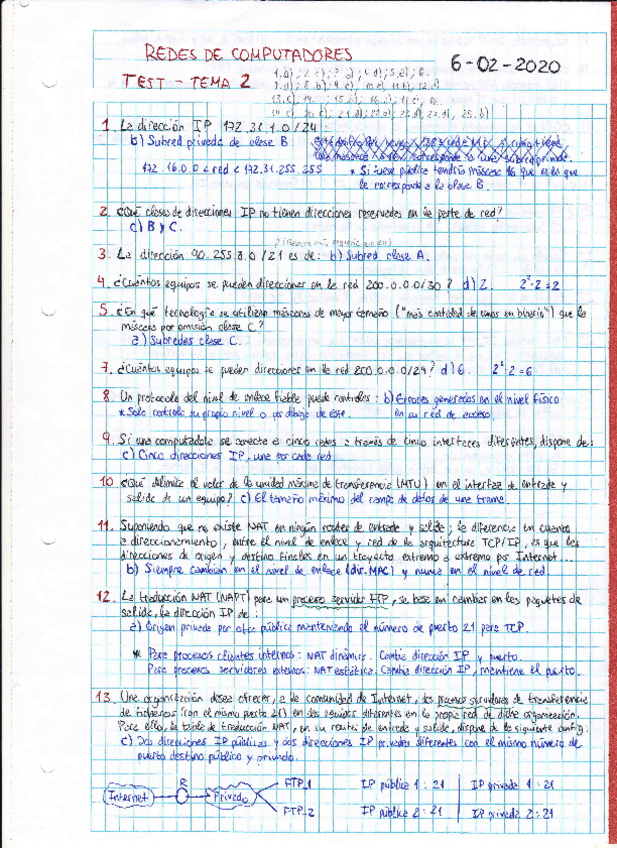 REDES DE COMPUTADORES
6-02-2020
TEST - TEMA 2
1. La dirección IP 172.31.1.0/24 :
b) Subred privada de clase B
172.16.0.0 < red < 172.31.255.255
* Si fuese pública tendría máscara 16 que es la que
le corresponde a la clase B.
2. ¿Qué clases de direcciones IP no tienen direcciones reservadas en la parte de red?
c) B y C.
3. La dirección 90.255.8.0 /21 es de: b) Subred clase A.
4. ¿Cuántos equipos se pueden direccionar en la red 200.0.0.0/30 ? d) 2. 2²-2 = 2
5. ¿En qué tecnología se utilizan máscaras de mayor tamaño ("más cantidad de unos en binario") que la
máscara por omisión clase C?
a) Subredes clase C.
7. ¿Cuántos equipos se pueden direccionar en la red 200.0.0.0/29? d) 6.
8. Un protocolo del nivel de enlace fiable puede controlar : b) Errores generados en el nivel físico
* Solo controla su propio nivel o por debajo de este. en su red de acceso.
9. Si una computadora se conecta a cinco redes a través de cinco interfaces diferentes, dispone de:
c) Cinco direcciones IP, una por cada red.
10. ¿Qué delimita el valor de la unidad máxima de transferencia (MTU) en el interfaz de entrada y
salida de un equipo? c) El tamaño máximo del campo de datos de una trama.
11. Suponiendo que no existe NAT en ningún router de entrada y salida ; la diferencia en cuanto
a direccionamiento, entre el nivel de enlace y red de la arquitectura TCP/IP, es que las
direcciones de origen y destino finales en un trayecto extremo a extremo por Internet...
b) Siempre cambian en el nivel de enlace (dir. MAC) y nunca en el nivel de red.
12. La traducción NAT (NAPT) para un proceso servidor FTP, se basa en cambiar en los paquetes de
salida, la dirección IP de :
a) Origen privada por otra pública manteniendo el número de puerto 21 para TCP.
* Para procesos clientes internos : NAT dinámica. Cambia dirección IP y puerto.
Para procesos servidores externos: NAT estática. Cambia dirección IP, mantiene el puerto.
13. Una organización desea ofrecer, a la comunidad de Internet, dos procesos servidores de transferencia
de ficheros (con el mismo puerto 21) en dos equipos diferentes en la propia red de dicha organización.
Para ello, la tabla de traducción NAT, en su router de entrada y salida, dispone de la siguiente config:
c) Dos direcciones IP públicas y dos direcciones IP privadas diferentes con el mismo número de
puerto destino público y privado.
Internet R Privado FTP_1 IP pública 1 : 21 IP privada 1 : 21
FTP_2 IP pública 2 : 21 IP privada 2 : 21